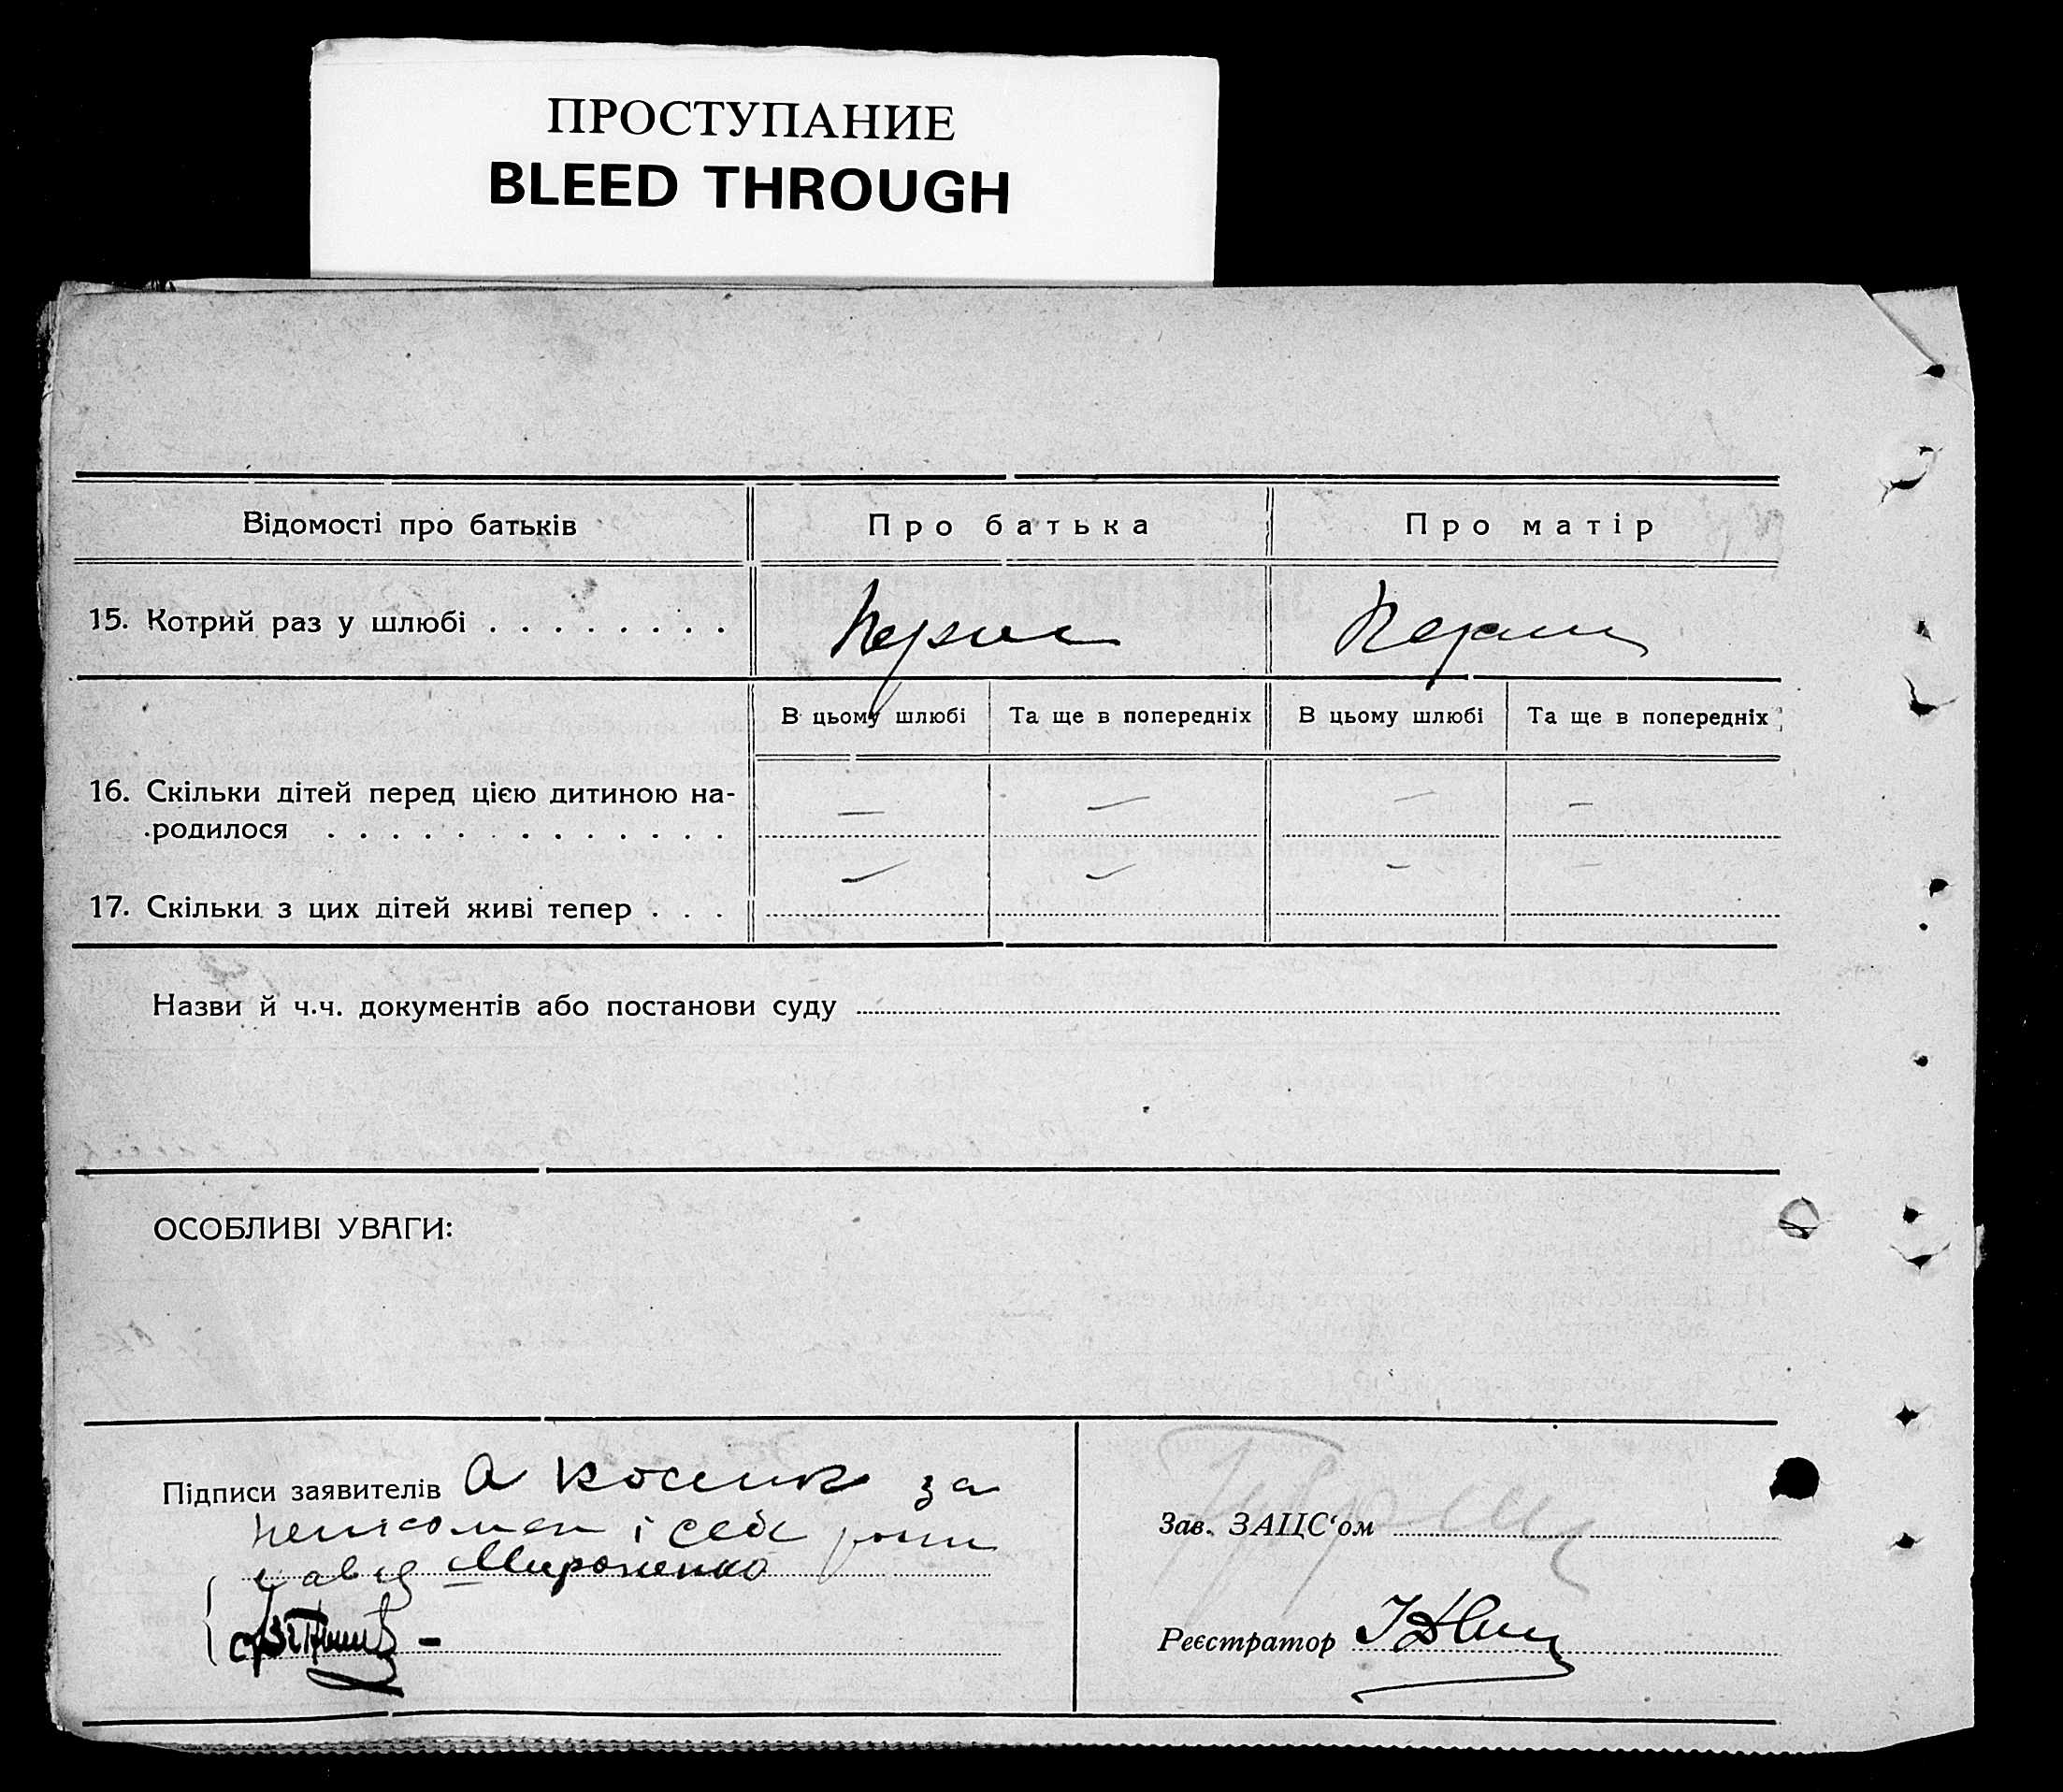 ПРОСТУПАНИЕ
BLEED THROUGH
Відомості про батьків Про батька Про матір
15. Котрий раз у шлюбі . . . . . . . .
В цьому шлюбі Та ще в попередніх В цьому шлюбі Та ще в попередніх
16. Скільки дітей перед цією дитиною на-
родилося . . . . . . . . . . . . . — — — —
17. Скільки з цих дітей живі тепер . . . — — — —
Назви й ч.ч. документів або постанови суду
ОСОБЛИВІ УВАГИ:
Підписи заявителів А за
і себе
Мироненко
Зав. ЗАЦС‘ом
Реєстратор